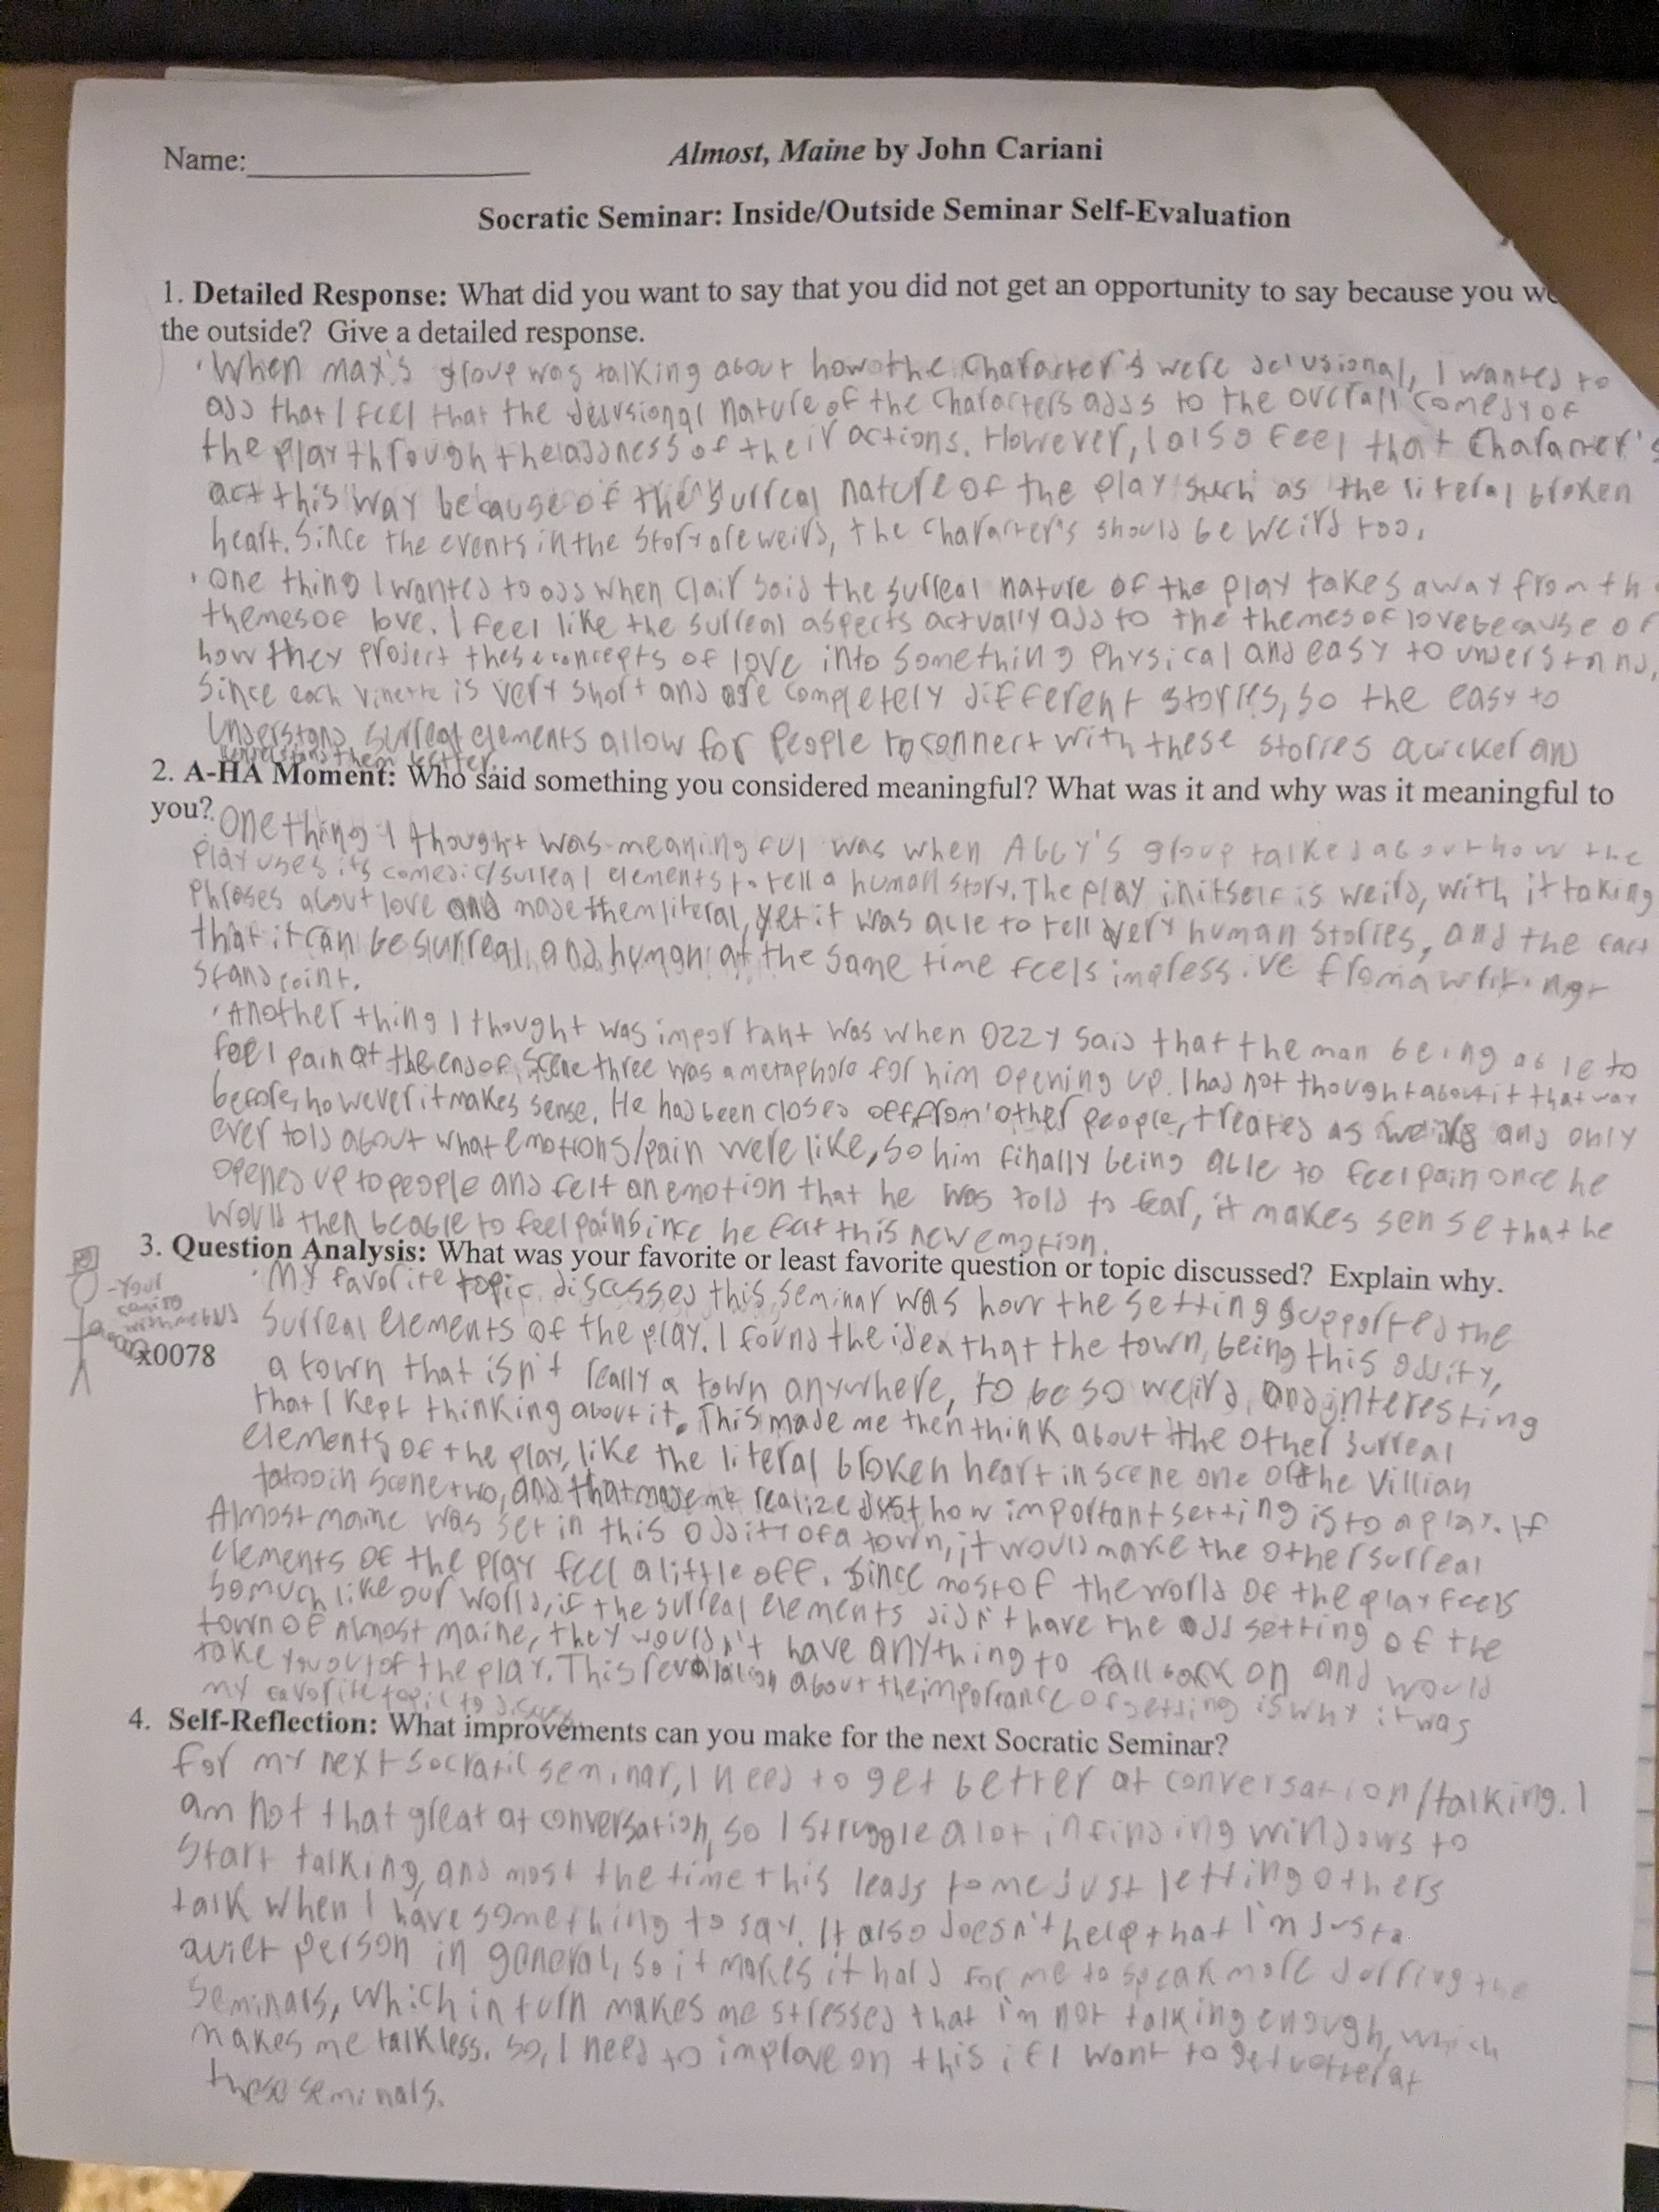 Name:
Almost, Maine by John Cariani
Socratic Seminar: Inside/Outside Seminar Self-Evaluation
1. Detailed Response: What did you want to say that you did not get an opportunity to say because you we
the outside? Give a detailed response.
· When Max's group was talking about how the Character's were delusional, I wanted to
add that I feel that the delusional nature of the Characters adds to the overall comedy of
the play through the oddness of their actions. However, I also feel that Character's
act this way because of the surreal nature of the play such as the literal broken
heart. Since the events in the story are weird, the character's should be weird too.
· One thing I wanted to add when Clair said the surreal nature of the play takes away from th
themes of love. I feel like the surreal aspects actually add to the themes of love because of
how they project these concepts of love into something Physical and easy to understand,
since each vinette is very short and are completely different stories, so the easy to
Understand surreal elements allow for People to connect with these stories quicker and
understand them better.
2. A-HA Moment: Who said something you considered meaningful? What was it and why was it meaningful to
you?
One thing I thought was meaningful was when Abby's group talked about how the
Play uses its comedic/surreal elements to tell a human story. The play in itself is weird, with it taking
Phrases about love and made them literal, yet it was able to tell very human stories, and the fact
that it can be surreal and human at the same time feels impressive from a writing
standpoint.
· Another thing I thought was important was when Ozzy said that the man being able to
feel pain at the end of scene three was a metaphore for him opening up. I had not thought about it that way
before, however it makes sense. He had been closed off from other people, treated as and only
ever told about what emotions/pain were like, so him finally being able to feel pain once he
opened up to people and felt an emotion that he was told to fear, it makes sense that he
would then be able to feel pain since he felt this new emotion.
3. Question Analysis: What was your favorite or least favorite question or topic discussed? Explain why.
· My favorite topic discussed this seminar was how the setting supported the
surreal elements of the play. I found the idea that the town, being this oddity,
a town that isn't really a town anywhere, to be so weird and interesting
that I kept thinking about it. This made me then think about the other surreal
elements of the play, like the literal broken heart in scene one or the Villian
tatoo in scene two, and that made me realize just how important setting is to a play. If
Almost maine was set in this oddity of a town, it would make the other surreal
elements of the play feel a little off. Since most of the world of the play feels
so much like our world, if the surreal elements didn't have the odd setting of the
town of Almost maine, they wouldn't have anything to fall back on and would
take you out of the play. This revalation about the importance of setting is why it was
my favorite topic to discuss.
-Your
coming
with me
x0078
4. Self-Reflection: What improvements can you make for the next Socratic Seminar?
For my next socratic seminar, I need to get better at conversation/talking. I
am not that great at conversation, so I struggle a lot in finding windows to
start talking, and most the time this leads to me just letting others
talk when I have something to say. It also doesn't help that I'm just a
quiet person in general, so it makes it hard for me to speak more durring the
seminars, which in turn makes me stressed that I'm not talking enough, which
makes me talk less. So, I need to improve on this if I want to get better at
these seminars.